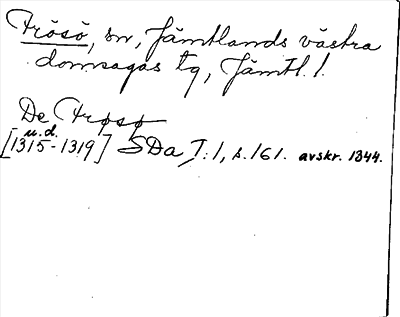 Frösö, sn, Jämtlands västra
domsagas tg, Jämtl. l.
De Frøsø
u.d.
[1315-1319] SDa I:1, s. 161. avskr. 1344.